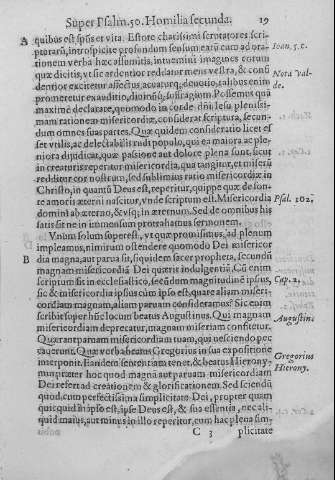 Super Psalm. 50. Homilia secunda. 19
A quibus est sp̃us et vita. Estote charissimi scrutatores scri
pturarũ, introspicite profundos sensum earũ cum ad ora- Ioan. 5. c.
tionem verba hæc assumitis, intuemini imagines eorum
quæ dicitis, vt sic ardentior reddatur mens vestra, & cõsi Nota Val-
dentior excitetur affectus, acuatur q; deuotio, talibus enim de.
promeretur exauditio, diuinũ q; suffragium. Possemus quã
maximè declarate, quomodo in corde dñi Iesu plenissi-
mam rationem misericordiæ, considerat scriptura, secun-
dum omnes suas partes. Quæ quidem consideratio licet es
set vtilis, ac delectabilis rudi populo, qui ea maiora ac ple-
niora dijudicat, quæ passione aut dolore plena sunt, sicut
in creaturis reperitur misericordia, qua tangitur, et miserũ
redditer cor nostrum, sed sublimius ratio misericordiæ in
Christo, in quantũ Deus est, reperitur, quippe quæ de fon-
te amoris æterni nascitur, vnde scriptum est. Misericordia Psal. 102.
domini ab æterno, & vsq; in æternum. Sed de omnibus his
satis siet ne in immensum protrahamus sermonem.
Vnum solum superest, vt quæ promisimus, ad plenum
impleamus, nimirum ostendere quomodo Dei misericor
B dia magna, aut parua sit, siquidem sacer propheta, secundũ
magnam misericordiã Dei quærit indulgentiã. Cũ enim
scriptum sit in ecclesiastico, secũdum magnitudinẽ ipsius, Cap. 2.
sic & misericordia ipsius cum ipso est, quare aliam miseri-
cordiam magnam, aliam paruam consideramus? Sic enim
scribit super hũc locum beatus Augustinus. Qui magnam Augustinꝰ
misericordiam deprecatur, magnam miseriam confitetur.
Quærant paruam misericordiam tuam, qui nesciendo pec
cauerunt. Quæ verba beatus Gregorius in sua expositione Gregorius
interponit. Eandem sententiam tenet, & beatus Hierony- Hierony.
mus præter hoc quod magnã aut paruam misericordiam
Dei refert ad creationem & glorificationem. Sed sciendũ
quod, cum perfectissima simplicitate Dei, propter quam
quicquid in ipso est, ipse Deus est, & sua essentia, nec ali-
quid maius, aut minus in illo reperitur, cum hac plena sim-
C 3 plicitate